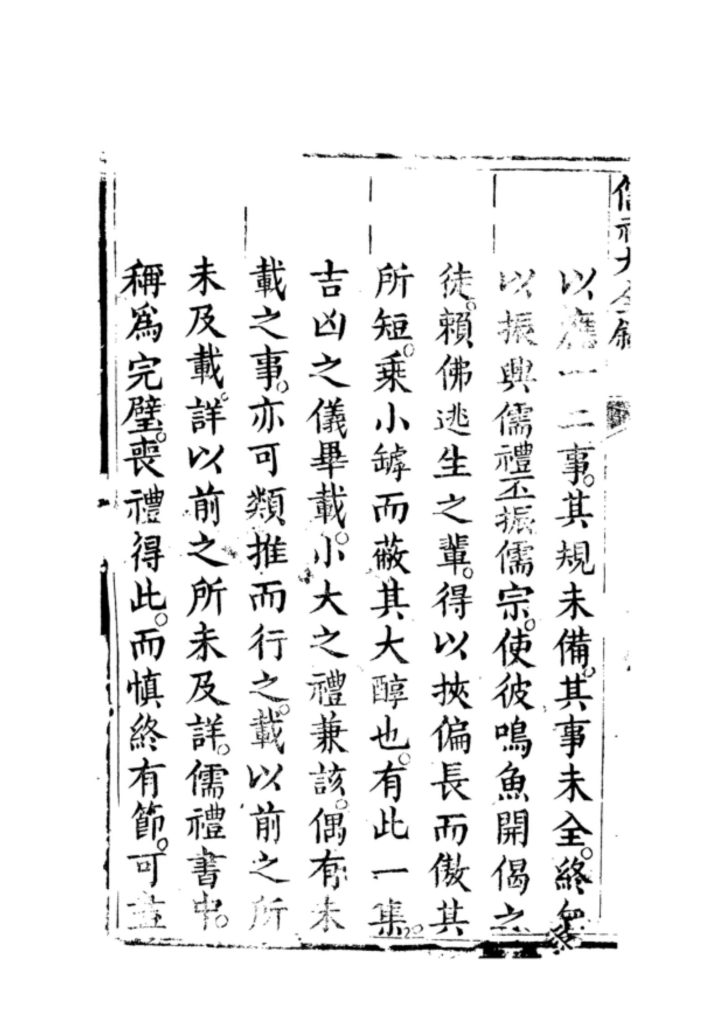 儒禮大全敘
以應一二事。其規未備。其事未全。終無
以振興儒禮丕振儒宗。使彼鳴魚開偈之
徒。賴佛逃生之輩。得以挾偏長而傲其
所短。乗小罅而蔽其大醇也。有此一集。
吉凶之儀畢載。小大之禮兼該。偶有未
載之事。亦可類推而行之。載以前之所
未及載。詳以前之所未及詳。儒禮書中。
稱爲完璧。喪禮得此。而慎終有節。可盡